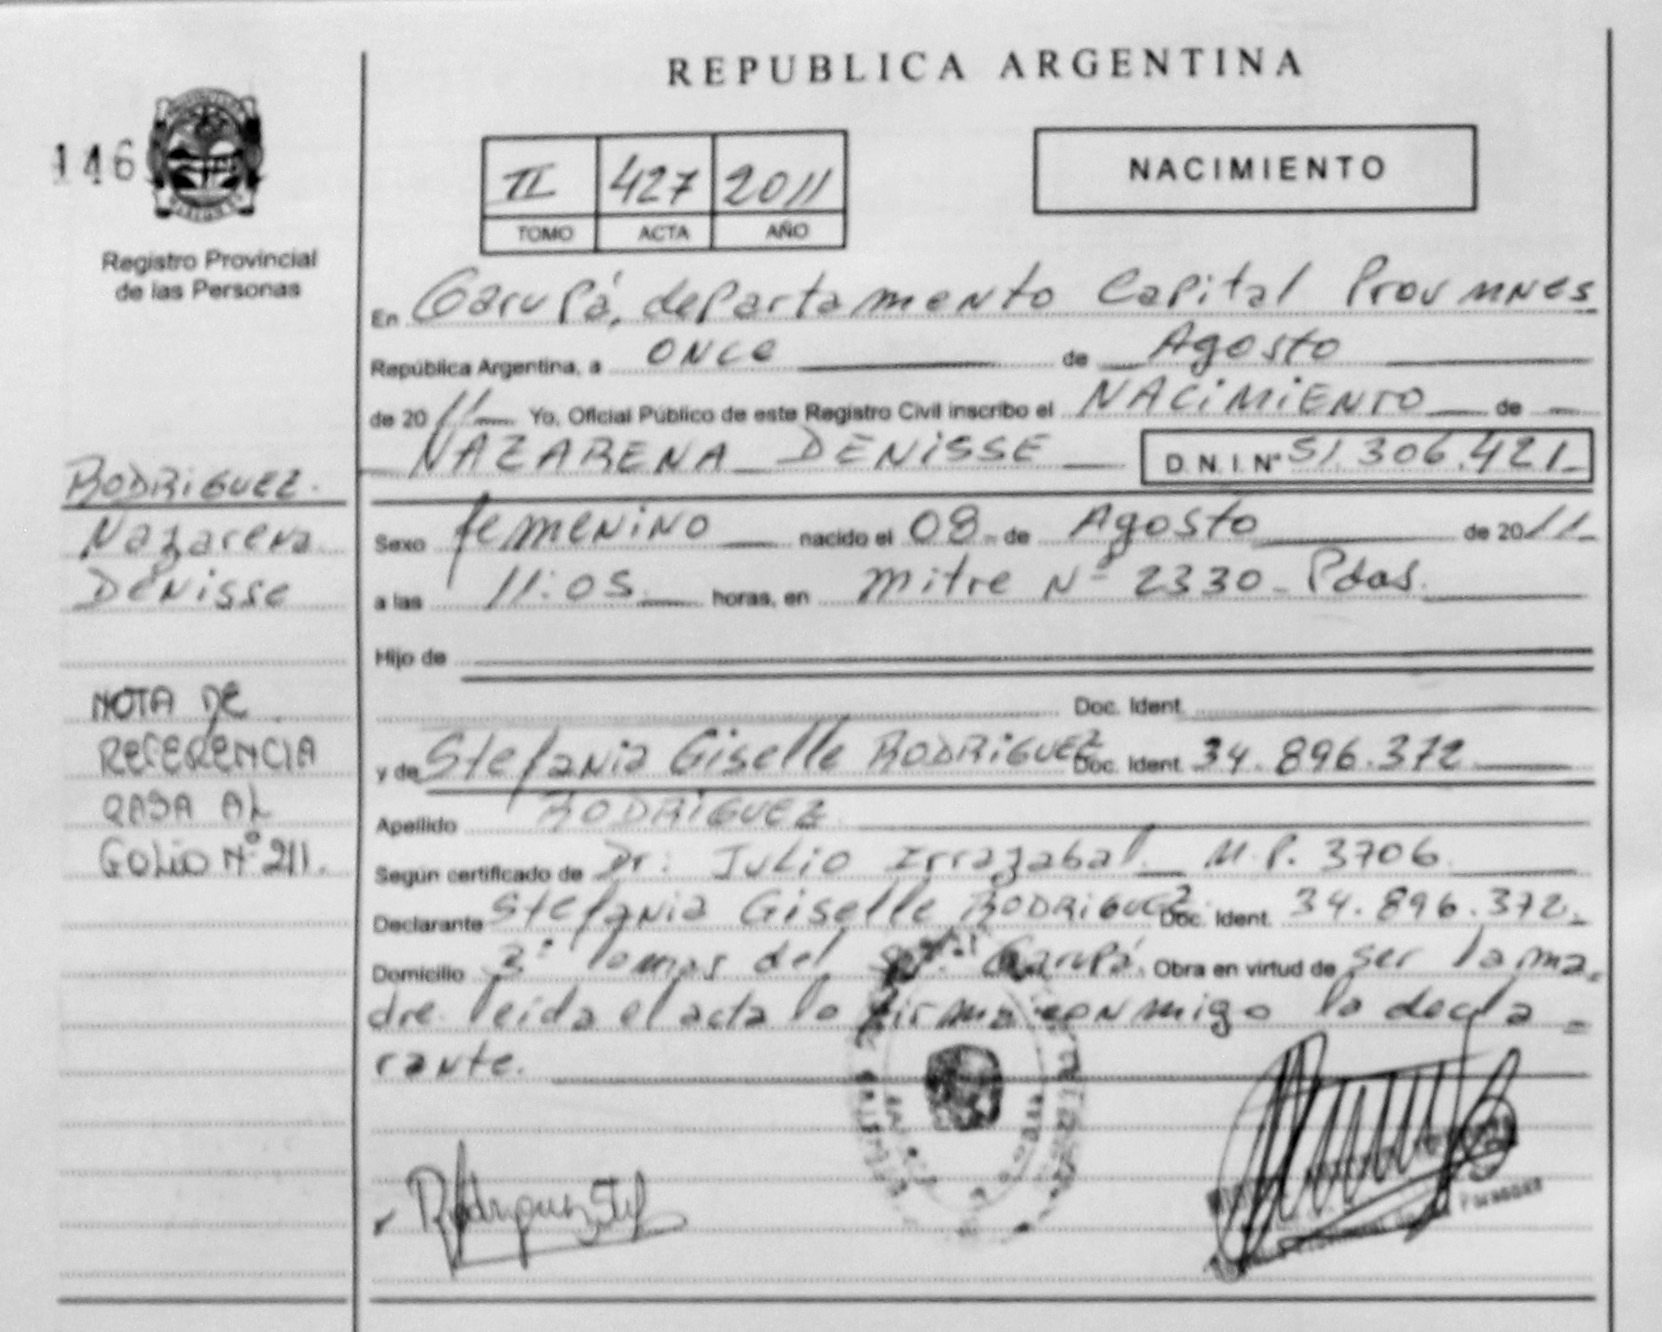 REPUBLICA ARGENTINA
146
II 427 2011
TOMO ACTA AÑO
NACIMIENTO
Registro Provincial
de las Personas
En Garupá, departamento Capital Prov mnes
República Argentina, a once de Agosto
de 2011 Yo, Oficial Público de este Registro Civil inscribo el NACIMIENTO de
NAZARENA DENISSE D.N.I. Nº 51.306.421
Sexo femenino nacido el 08 de Agosto de 2011
a las 11:05 horas, en mitre Nº 2330 - Pdas.
Hijo de
Doc. Ident.
y de Stefania Giselle RODRIGUEZ Doc. Ident. 34.896.372
Apellido RODRIGUEZ
Según certificado de Dr: Julio Irrazabal M.P. 3706
Declarante Stefania Giselle RODRIGUEZ Doc. Ident. 34.896.372
Domicilio lomas del Garupá. Obra en virtud de ser la ma-
dre. leída el acta la firma conmigo la decla=
rante.
RODRIGUEZ.
Nazarena
Denisse
NOTA DE
REFERENCIA
PASA AL
FOLIO Nº 211.
Rodriguez Stef